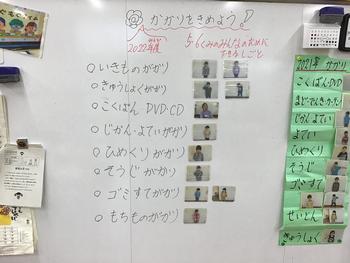 かかりをきめよう。
2022年度
5・6くみのみんなのために
できるしごと
○いきものがかり
○きゅうしょくがかり
○こくばん DVD・CD
○じかん・よていがかり
○ひめくりがかり
○そうじがかり
○ゴミすてがかり
○もちものがかり
2021年 かかり
こくばん・DVD
まど・でんき・カーテン
じかんよてい
よてい
ひめくり
そうじ
ゴミすて
せいとん
きゅうしょく